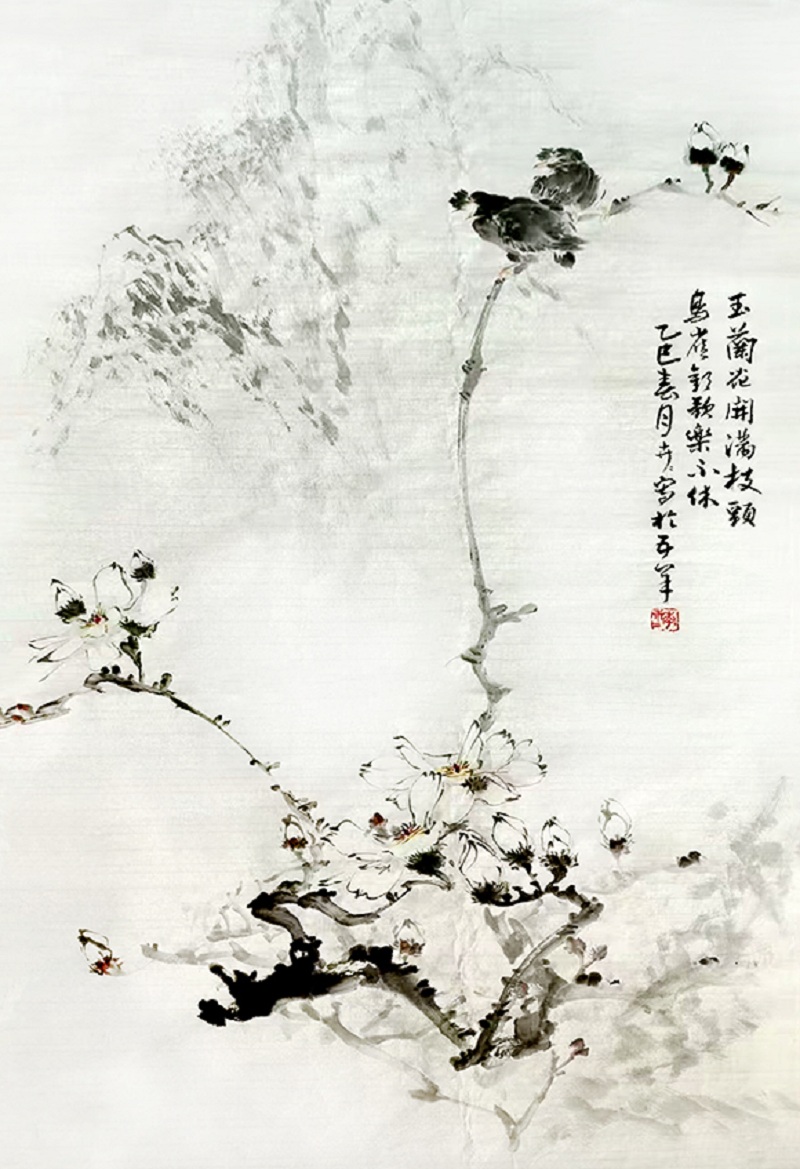 玉蘭花開滿枝頭
鳥雀歡歌樂不休
乙巳春月寫於